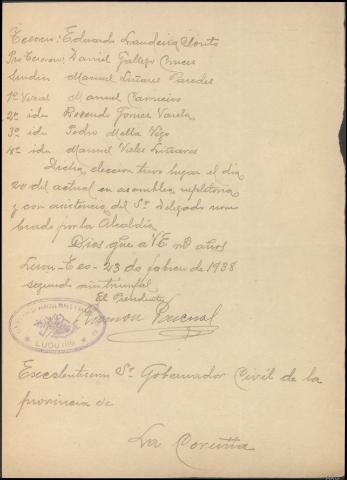 Tesoro: Eduardo Landeira Souto
Pro Tesorero: Daniel Gallego Cruces
Sindico Manuel Liñares Paredes
1º Vocal Manuel Carneiro
2º idem Rosendo Gomes Varela
3º idem Pedro Mella Vigo
4º idem Manuel Vales Linares
Dicha eleccion tuvo lugar el dia
20 del actual en asamblea repletoria
y con asistencia del Sr Delegado nom
brado por la Alcaldia
Dios gue a VE ms años
Luou-Teo-23 de febrero de 1938
segundo año triunfal
El Presidente
Ramon
LUOU
Excelentisimo Sr Gobernador Civil de la
provincia de
La Coruña